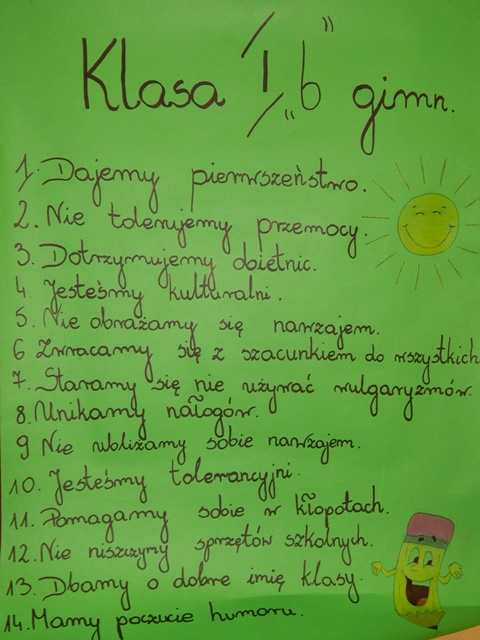 Klasa I „b” gimn.
1. Dajemy pierwszeństwo.
2. Nie tolerujemy przemocy.
3. Dotrzymujemy obietnic.
4 Jesteśmy kulturalni.
5. Nie obrażamy się nawzajem.
6 Zwracamy się z szacunkiem do wszystkich
7. Staramy się nie używać wulgaryzmów.
8. Unikamy nałogów.
9 Nie ubliżamy sobie nawzajem.
10. Jesteśmy tolerancyjni.
11. Pomagamy sobie w kłopotach.
12. Nie niszczymy sprzętów szkolnych.
13. Dbamy o dobre imię klasy.
14. Mamy poczucie humoru.